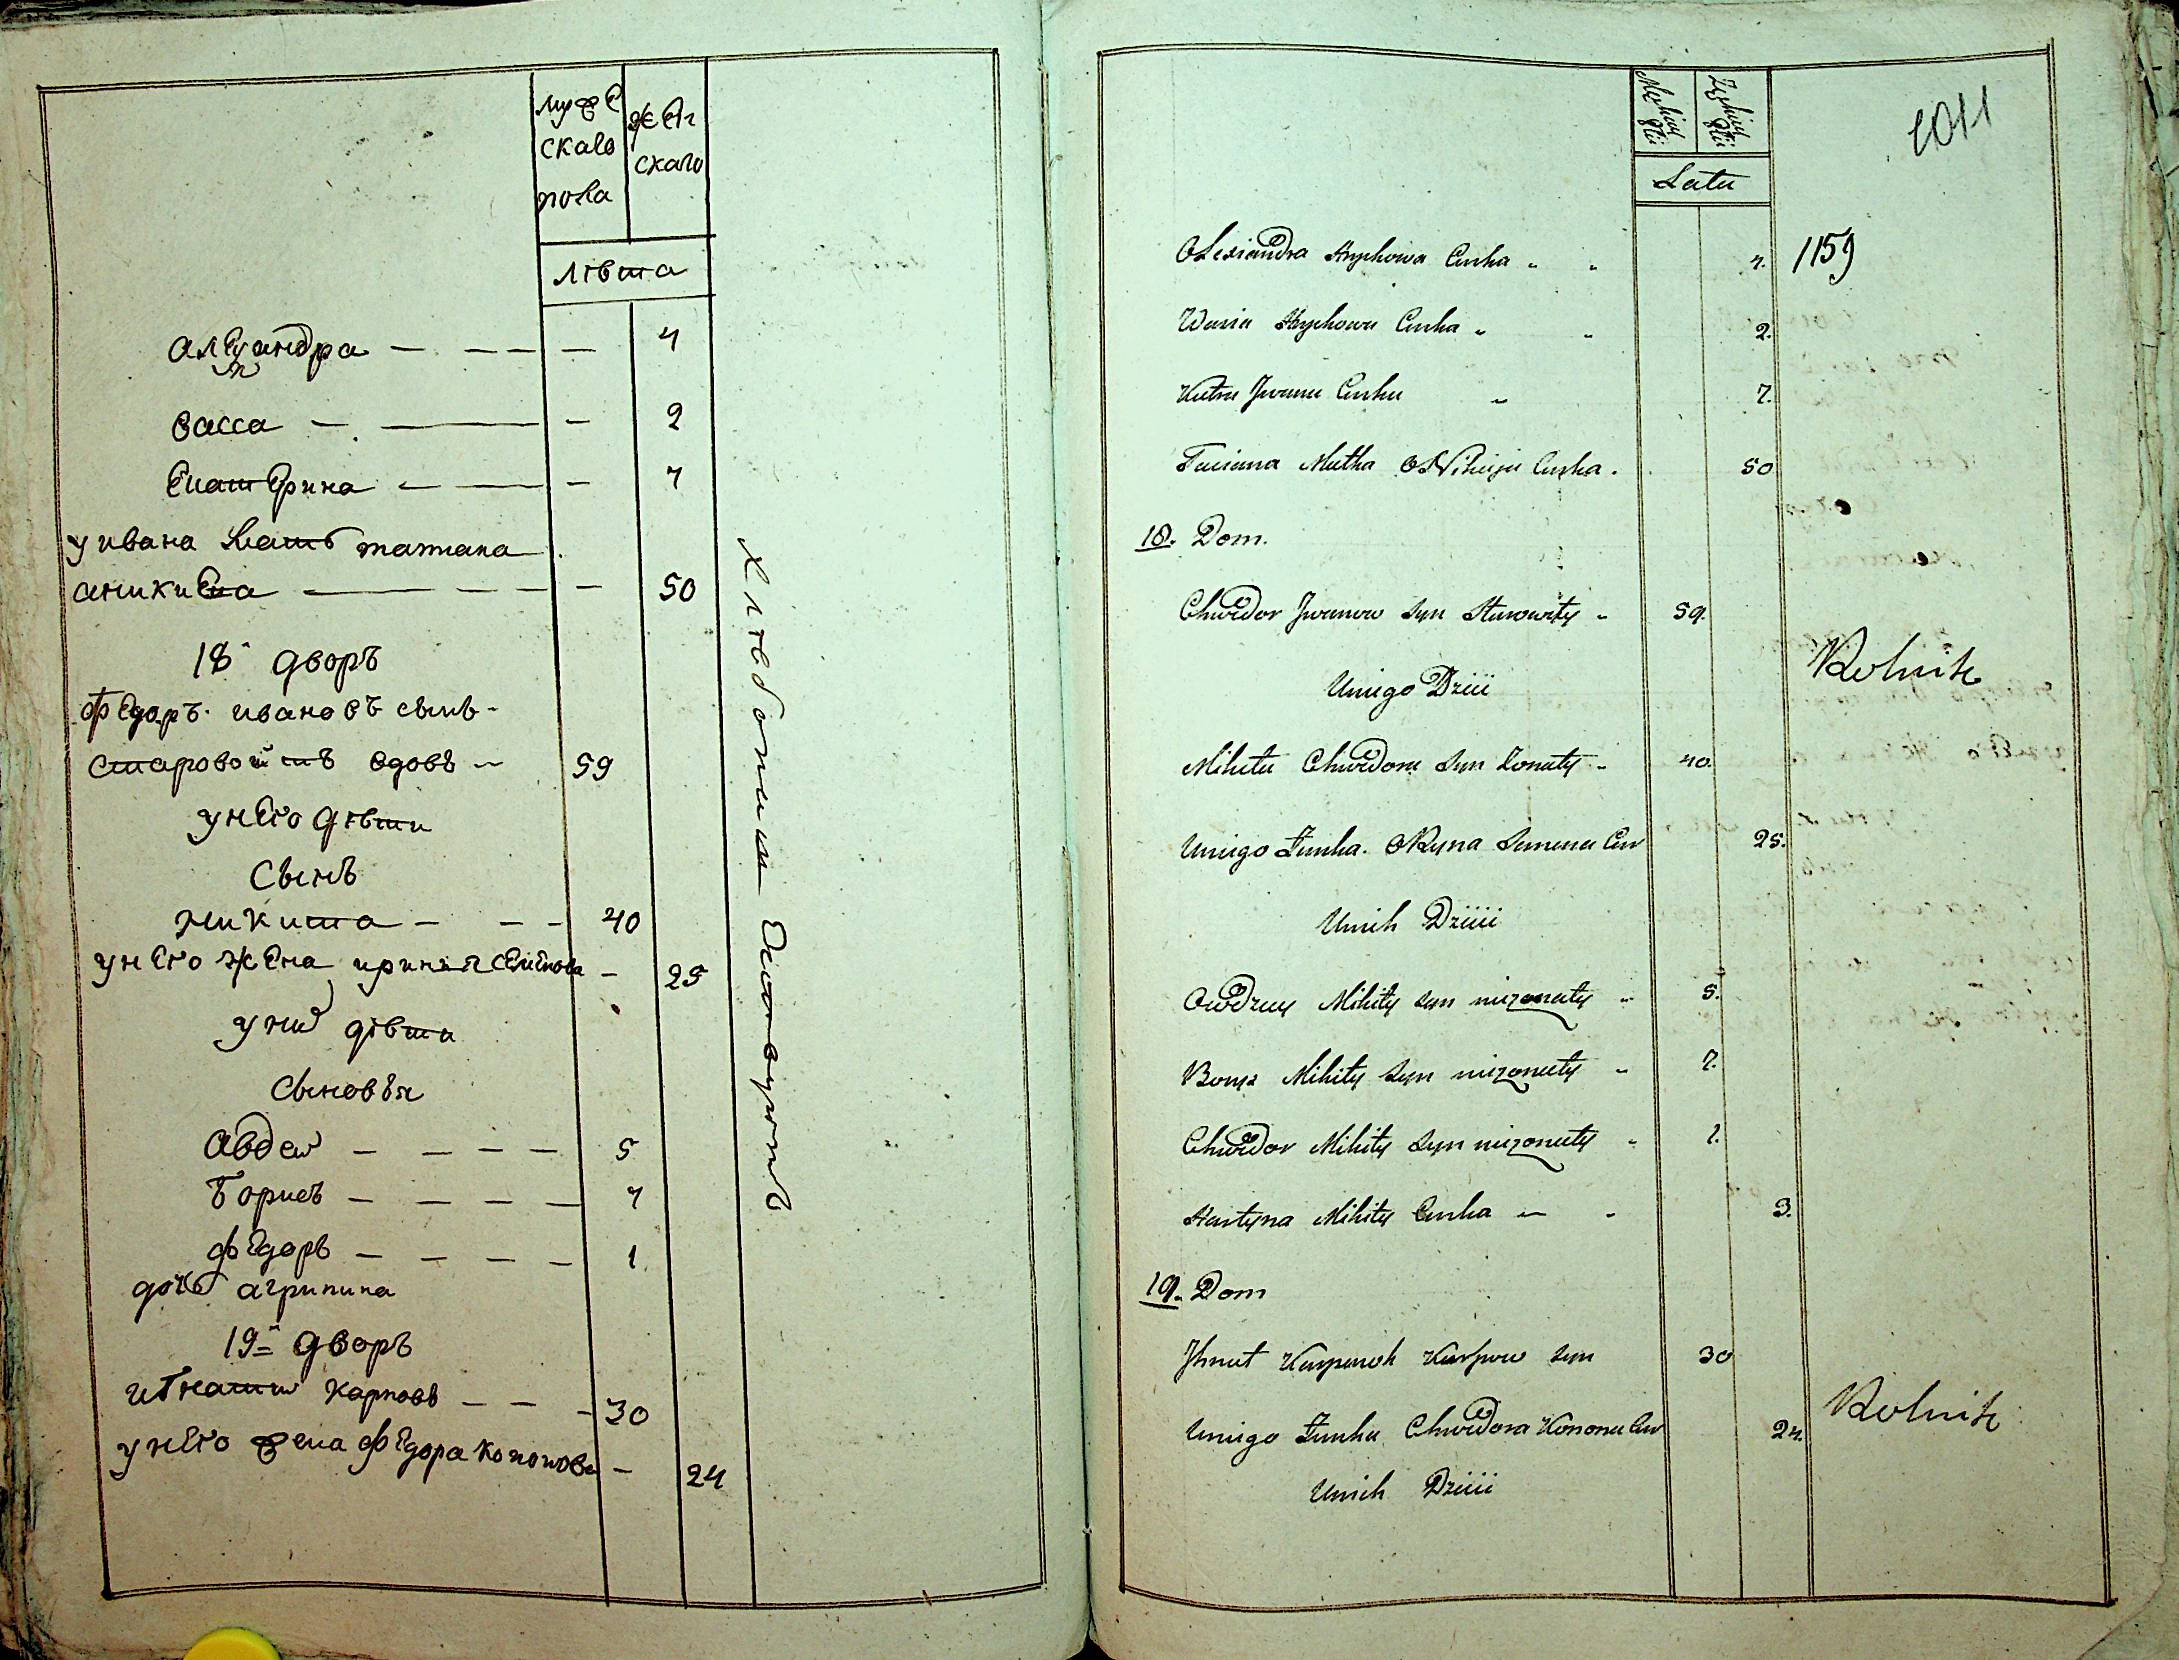 мужескаго пола
женскаго
лѣта
александра — — — — 4
васса — — — 2
екатерина — — — 7
у ивана мать татиана
аникиева — — — — — 50
18й дворъ
Федоръ ивановъ сынъ
старовойтъ вдовъ — 59
у него дѣти
сынъ
никита — — — 40
у него жена ирина семенова — 25
у них дѣти
сыновья
авдеи — — — — 5
борисъ — — — — 7
федоръ — — — — 1
дочь агрипина
19й дворъ
игнатии карповъ — — — 30
у него жена федора кононова — 24
хлѣбопашествуютъ
1011
Męskiey Płci
Żęskiey Płci
Latu
Olexiandra Curka 4. 1159
Wasia Curka 2.
Katra Jwana Curka 7.
Taciana Matka Curka 50
18. Dom.
Chwedor Jwanow Syn 59.
Rolnik
Uniego Dzieii
Mikita Chwedora Syn Żonaty 40.
Uniego Żonka Okryna Semena Cur 25.
Unich Dzieii
Owdziey Mikity Syn nieżonaty 5.
Borys Mikity Syn nieżonaty 7.
Chwedor Mikity Syn nieżonaty 1.
Hartyna Mikity Curka 3.
19. Dom
Jhnat Karpow Syn 30
Rolnik
Uniego Żonka Chwedora Konona Cur 24.
Unich Dzieii